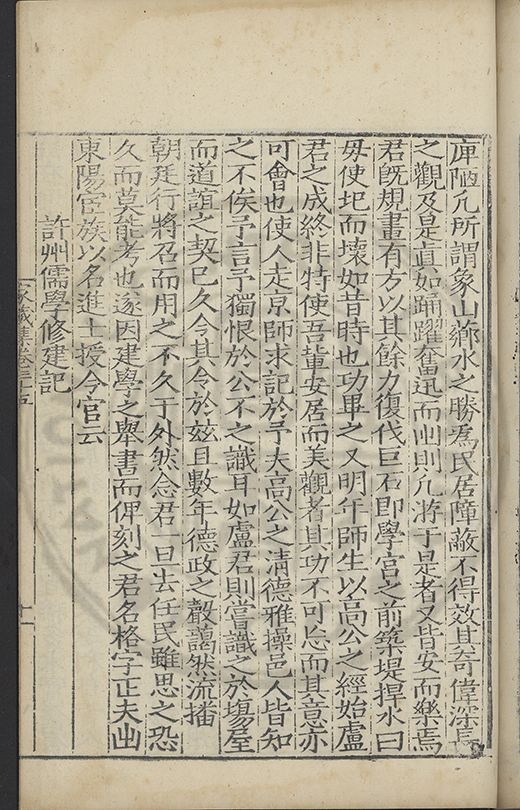 庳陋凡所謂象山薌水之勝爲民居障蔽不得效其竒偉深長
之觀及是直如踊躍奮迅而出則凡游于是者又皆安而樂焉
君旣規畫有方以其餘力復伐巨石即學宫之前築堤捍水曰
毋使圯而壞如昔時也功畢之又明年師生以高公之經始盧
君之成終非特使吾輩安居而美觀者其功不可忘而其意亦
可會也使人走京師求記於予夫高公之清德雅操邑人皆知
之不俟予言予獨恨於公不之識耳如盧君則嘗識之於塲屋
而道誼之契巳久今其令於兹且數年德政之聲藹然流播
朝廷行將召而用之不久于外然念君一旦去任民雖思之恐
久而莫能考也遂因建學之舉書而俾刻之君名格字正夫出
東陽宦族以名進士授今官云
許州儒學修建記
家藏集卷三十五
十一